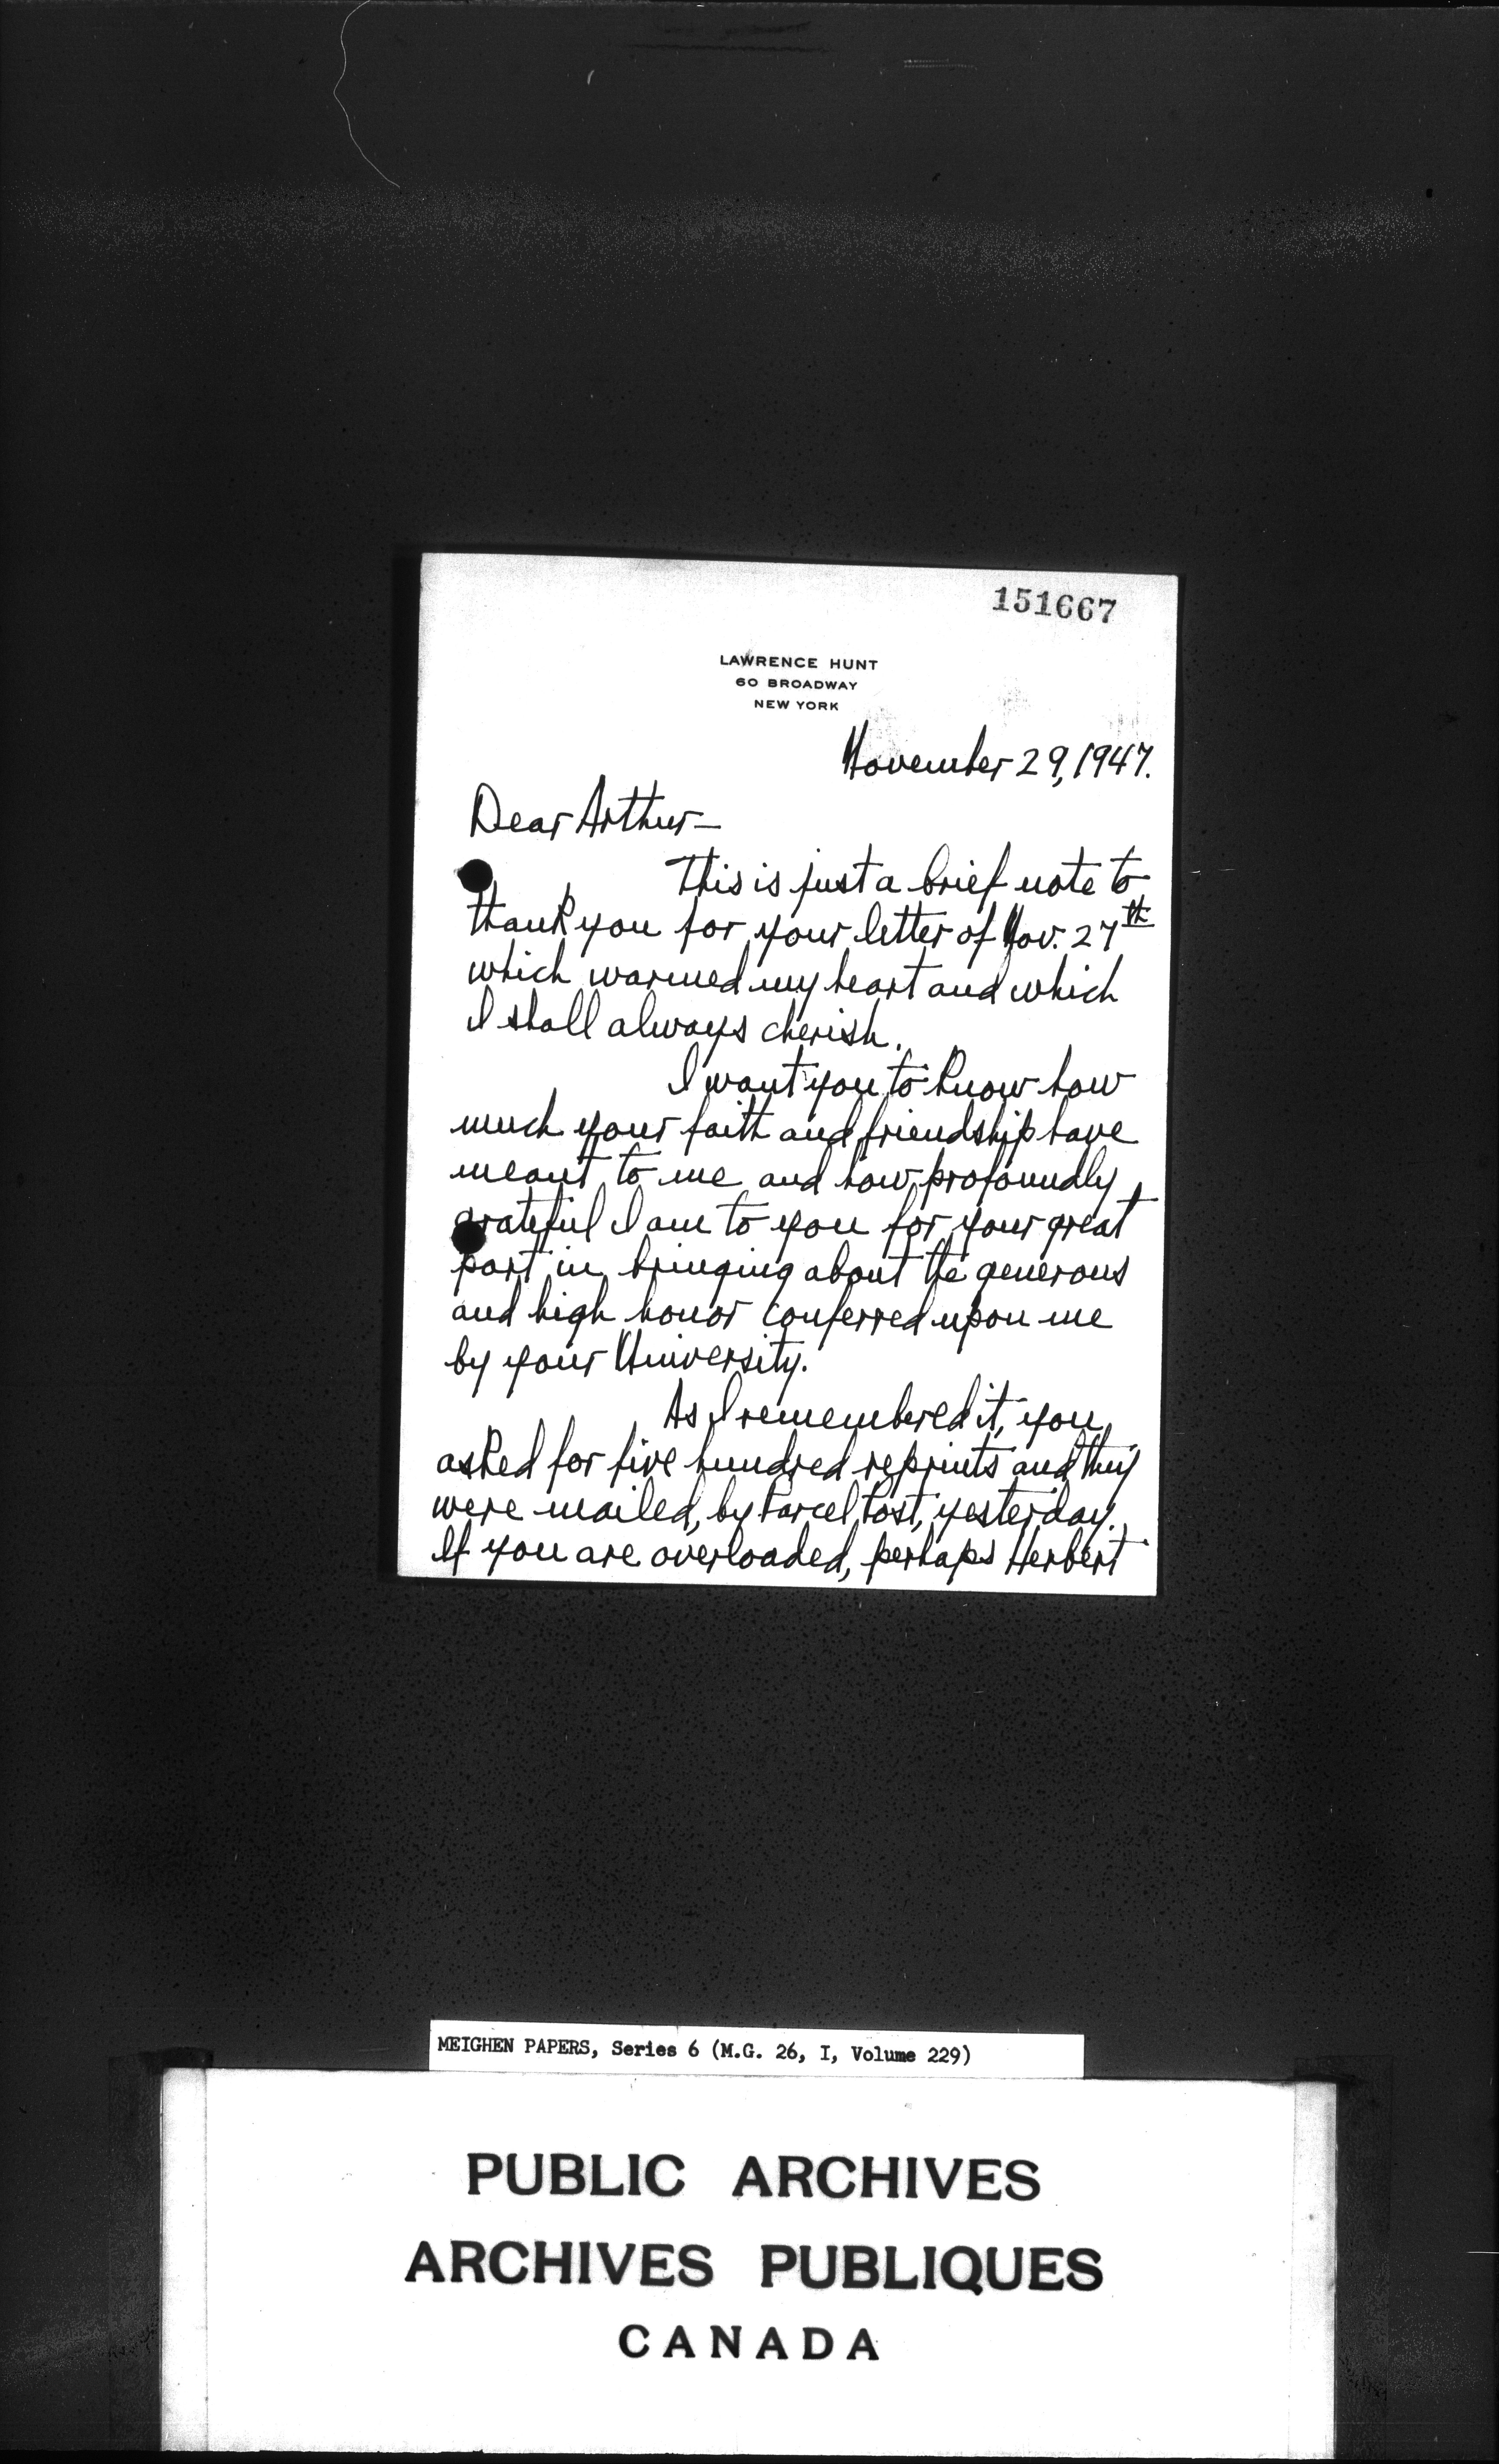 151667
LAWRENCE HUNT
60 BROADWAY
NEW YORK
November 29, 1947.
Dear Arthur—
This is just a brief note to
thank you for your letter of Nov. 27th
which warmed my heart and which
I shall always cherish.
I want you to know how
much your faith and friendship have
meant to me and how profoundly
grateful I am to you for your great
part in bringing about the generous
and high honor conferred upon me
by your University.
As I remembered it, you
asked for five hundred reprints and they
were mailed, by Parcel Post, yesterday.
If you are overloaded, perhaps Herbert
MEIGHEN PAPERS, Series 6 (M.G. 26, I, Volume 229)
PUBLIC ARCHIVES
ARCHIVES PUBLIQUES
CANADA